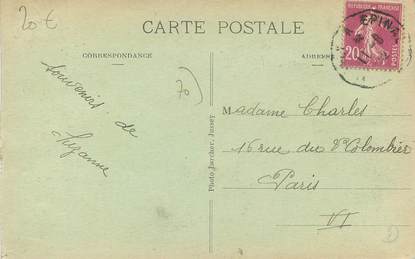 20 €
CARTE POSTALE
CORRESPONDANCE
ADRES
REPUBLIQUE FRANÇAISE
EPINAL
20
POSTES
70
souvenirs de
Suzanne
Photo Jurcher, Jussey
Madame Charles
16 rue du Vx Colombier
Paris
VI
D